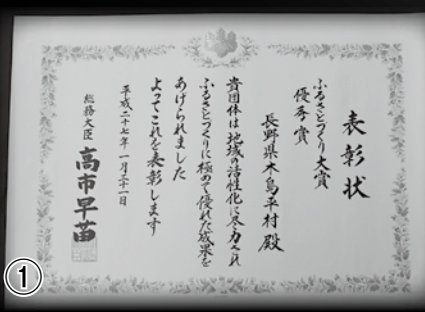 表彰状
ふるさとづくり大賞
優秀賞
長野県木島平村殿
貴団体は地域の活性化に尽力され
ふるさとづくりに極めて優れた成果を
あげられました
よってこれを表彰します
平成二十七年一月三十一日
総務大臣 高市早苗
①